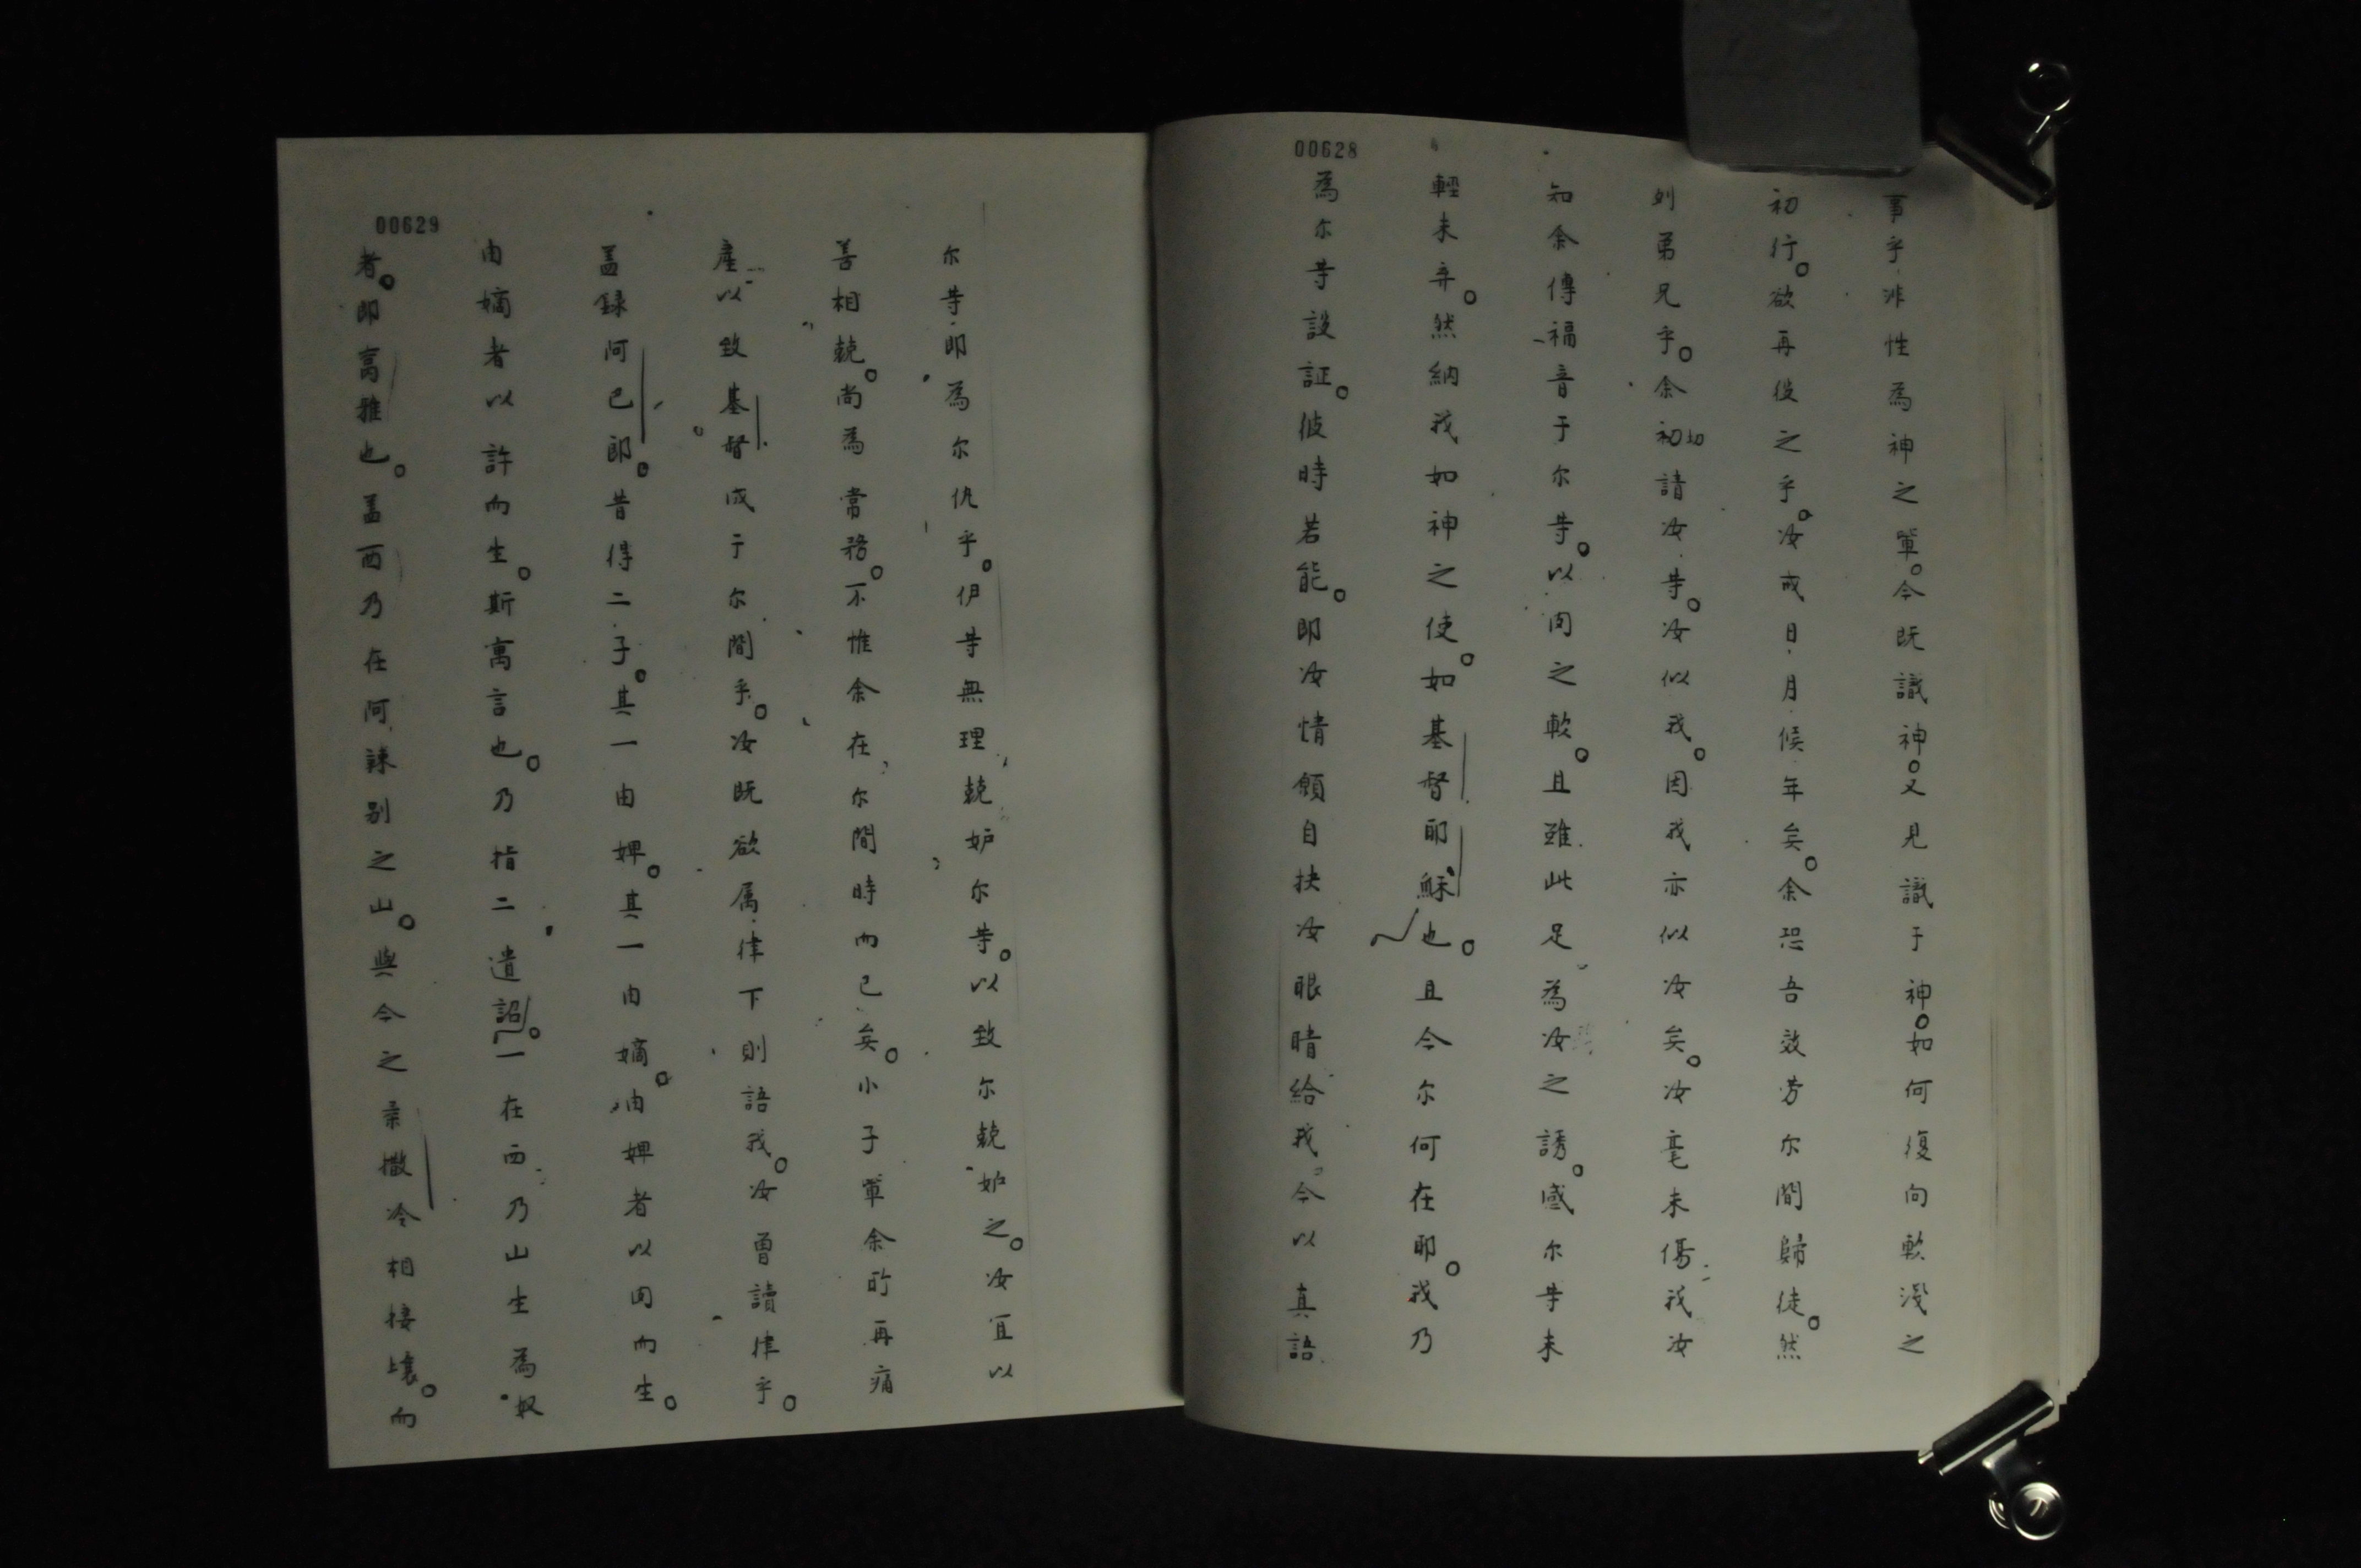 00628
事乎非性為神之軰。今既識神。又見識于神。如何復向軟淺之
初行。欲再役之乎。汝戒日月候年矣。余恐吾效劳尔間歸徒。然
列弟兄乎。余初初請汝䓁。汝似我。因我亦似汝矣。汝毫未傷我汝
知余傳福音于尔䓁。以肉之軟。且雖此足為汝之誘。感尔䓁未
輕未弃。然納我如神之使。如基督耶穌也。且今尔何在耶。我乃
為尔䓁設証。彼時若能。即汝情願自抉汝眼睛給我今以真語
00629
尔䓁即為尔仇乎。伊䓁無理兢妒尔䓁。以致尔兢妒之。汝宜以
善相兢。尚為常務。不惟余在尔間時而已矣。小子軰余所再痛
產以致基督成于尔間乎。汝既欲属律下則語我。汝曾讀律乎。
盖録阿巴郎。昔得二子。其一由婢。其一由嫡。由婢者以肉而生。
由嫡者以許而生。斯寓言也。乃指二遺詔。一在西乃山生為奴
者。即亯雅也。盖西乃在阿辣别之山。與今之柔撒冷相接壌。而